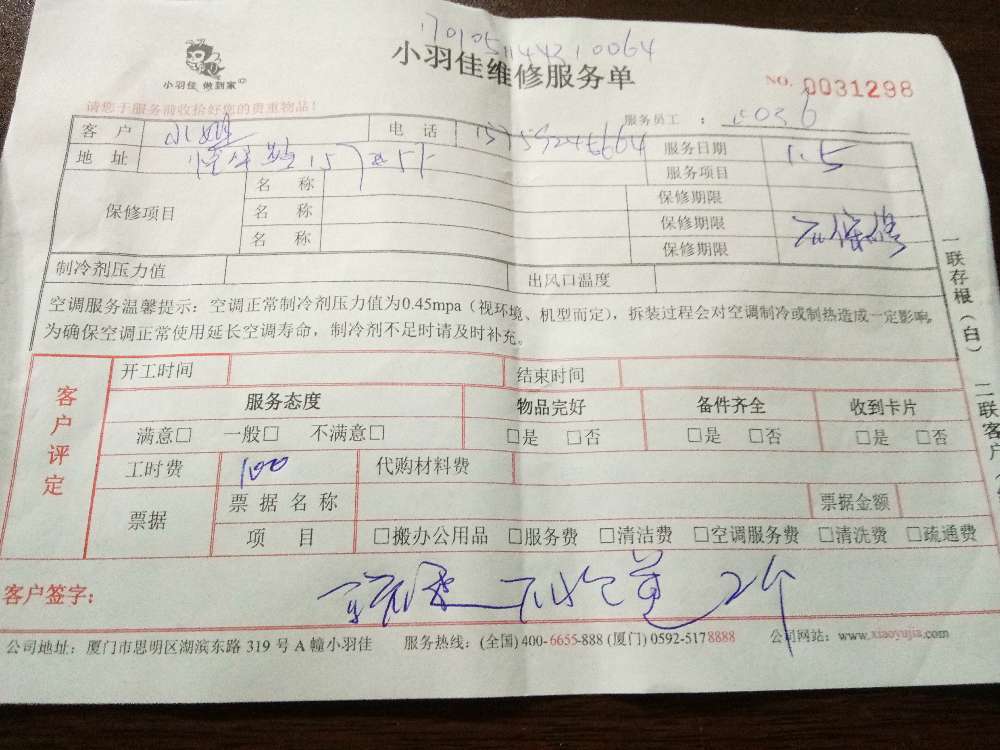 小羽佳 做到家
小羽佳维修服务单
NO. 0031298
请您于服务前收拾好您的贵重物品!
服务员工 :
客 户 电 话 服务日期 1.5
地 址 服务项目
保修项目 名 称 保修期限
名 称 保修期限 不保修
名 称 保修期限
制冷剂压力值 出风口温度
空调服务温馨提示:空调正常制冷剂压力值为0.45mpa(视环境、机型而定),拆装过程会对空调制冷或制热造成一定影响,
为确保空调正常使用延长空调寿命,制冷剂不足时请及时补充。
一联存根(白) 二联客户
客户评定
开工时间 结束时间
服务态度 物品完好 备件齐全 收到卡片
满意□ 一般□ 不满意□ □是 □否 □是 □否 □是 □否
工时费 100 代购材料费
票据 票 据 名 称 票据金额
项 目 □搬办公用品 □服务费 □清洁费 □空调服务费 □清洗费 □疏通费
客户签字: 2个
公司地址:厦门市思明区湖滨东路 319 号 A 幢小羽佳 服务热线:(全国) 400-6655-888 (厦门) 0592-5178888 公司网站:www.xiaoyujia.com